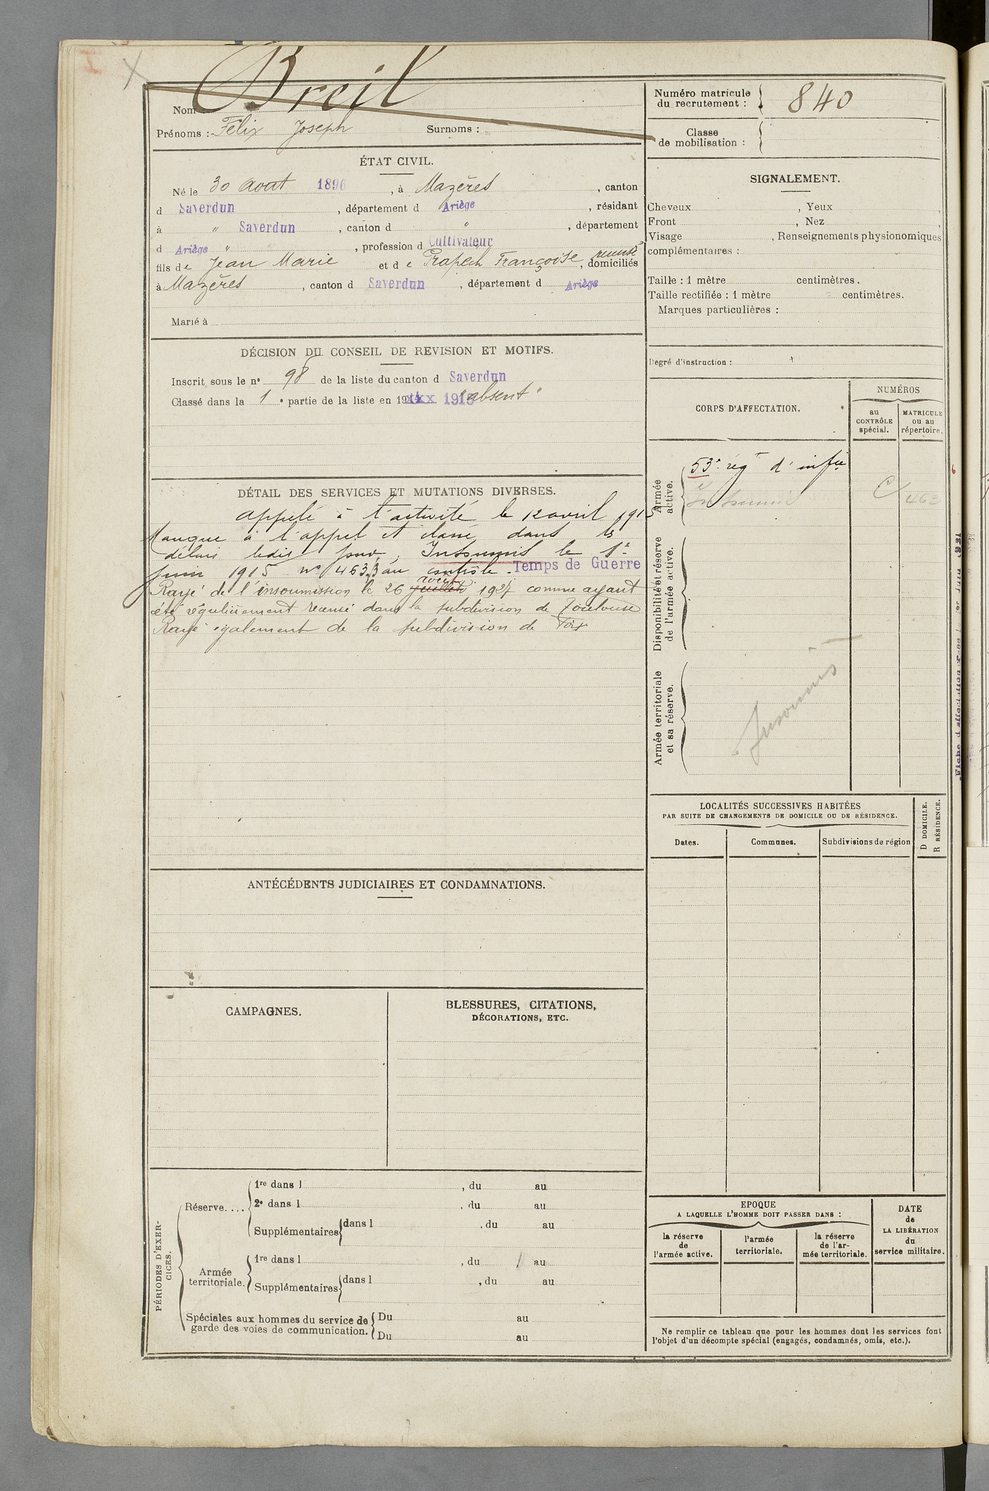 Breil
Nom
Prénoms : Félix Joseph Surnoms :
Numéro matricule
du recrutement : 840
Classe
de mobilisation :
ÉTAT CIVIL.
Né le 30 Août 1896, à Mazères, canton
d Saverdun, département d Ariège, résidant
à " Saverdun, canton d ", département
d Ariège ", profession d Cultivateur
fils de Jean Marie et de Françoise, domiciliés
à Mazères, canton d Saverdun, département d Ariège
Marié à
DÉCISION DU CONSEIL DE REVISION ET MOTIFS.
Inscrit sous le n° 98 de la liste du canton d Saverdun
Classé dans la 1e partie de la liste en 1915 "absent"
DÉTAIL DES SERVICES ET MUTATIONS DIVERSES.
Appelé à l'activité le 12 avril 1915
Manque à l'appel et dans les
délais Insoumis le 1er
juin 1915 n° 4633 au contrôle. Temps de Guerre
Rayé de l'insoumission le 26 avril 192 comme ayant
été régulièrement recensé dans la subdivision de Toulouse
Rayé également de la subdivision de Foix
ANTÉCÉDENTS JUDICIAIRES ET CONDAMNATIONS.
CAMPAGNES.
BLESSURES, CITATIONS,
DÉCORATIONS, ETC.
PÉRIODES D'EXERCICES.
Réserve....
1re dans l , du au
2e dans l , du au
Supplémentaires dans l , du au
Armée
territoriale.
1re dans l , du au
Supplémentaires dans l , du au
Spéciales aux hommes du service de
garde des voies de communication.
Du au
Du au
SIGNALEMENT.
Cheveux , Yeux
Front , Nez
Visage , Renseignements physionomiques
complémentaires :
Taille : 1 mètre centimètres.
Taille rectifiée : 1 mètre centimètres.
Marques particulières :
Degré d'instruction :
CORPS D'AFFECTATION.
NUMÉROS
au
CONTRÔLE
spécial.
MATRICULE
ou au
répertoire.
Armée
active.
53e régt d'infie
Insoumis
Disponibilité et réserve
de l'armée active.
Armée territoriale
et sa réserve.
Insoumis
LOCALITÉS SUCCESSIVES HABITÉES
PAR SUITE DE CHANGEMENTS DE DOMICILE OU DE RÉSIDENCE.
D DOMICILE.
R RÉSIDENCE.
Dates.
Communes.
Subdivisions de région
EPOQUE
A LAQUELLE L'HOMME DOIT PASSER DANS :
la réserve
de
l'armée active.
l'armée
territoriale.
la réserve
de l'ar-
mée territoriale.
DATE
de
LA LIBÉRATION
du
service militaire.
Ne remplir ce tableau que pour les hommes dont les services font
l'objet d'un décompte spécial (engagés, condamnés, omis, etc.).